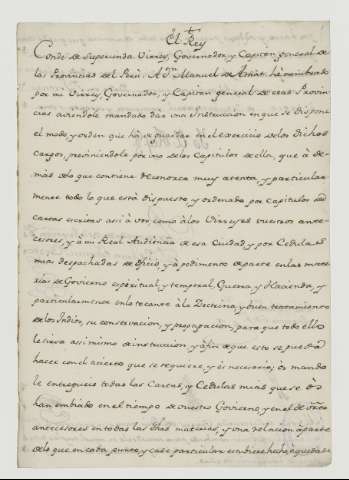 El Rey
Conde de Superunda Virrey, Governador, y Capitan general de
las Provincias del Perú. A Dn. Manuel de Amat he nombrado
por mi Virrey, Governador, y Capitan general de esas Provin
cias aviendole mandado dar una Instruccion en que se dispone
el modo y orden que ha de guardar en el exercicio de los dichos
cargos, previniendole por uno de los Capitulos de ella, que â de
mas de lo que contiene reconozca muy atenta, y particular
mente todo lo que está dispuesto, y ordenado por capitulos de
cartas escritas assi â vos, como â los Virreyes vuestros ante
cesores, y â mi Real Audiencia de esa Ciudad y por Cedulas
mias despachadas de oficio, y â pedimento de parte en las mate
rias de Govierno espiritual y temporal, Guerra, y Hacienda, y
particularmente en lo tocante â la Doctrina, y buen tratamiento
de los Indios, su conservacion, y propagacion, para que todo ello
le sirva assimismo de instruccion, y â fin de que esto se pueda
hacer con el acierto que se requiere, y es necesario; os mando
le entregueis todas las Cartas, y Cedulas mias que se os
han embiado en el tiempo de vuestro Govierno, y en el de vros
antecesores en todas las dhas materias, y una relacion aparte
de lo que en cada punto, y caso particular estubiere hecho